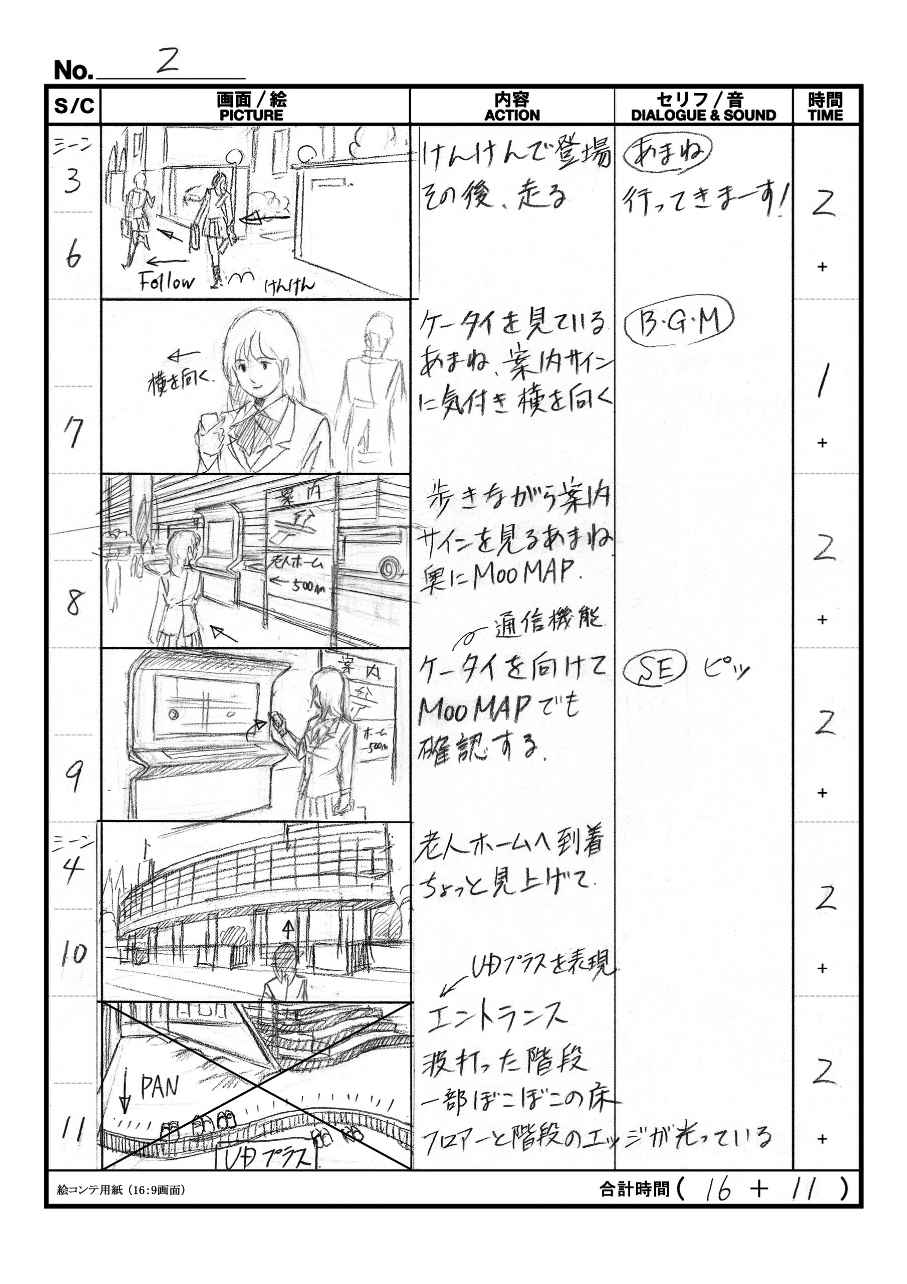 No. 2
S/C
画面/絵
PICTURE
内容
ACTION
セリフ/音
DIALOGUE & SOUND
時間
TIME
シーン
3
6
Follow
けんけん
けんけんで登場
その後、走る
あまね
行ってきまーす!
2
+
7
横を向く.
ケータイを見ている
あまね、案内サイン
に気付き横を向く
B・G・M
1
+
8
案内
老人ホーム
← 500m
歩きながら案内
サインを見るあまね
奥にMOO MAP.
2
+
9
案内
ホーム
500m
通信機能
ケータイを向けて
MOO MAPでも
確認する.
SE ピッ
2
+
シーン
4
10
老人ホームへ到着
ちょっと見上げて.
2
+
11
PAN
UDプラス
UDプラスを表現
エントランス
波打った階段
一部ぼこぼこの床
フロアーと階段のエッジが光っている
2
+
絵コンテ用紙(16:9画面)
合計時間( 16 + 11 )